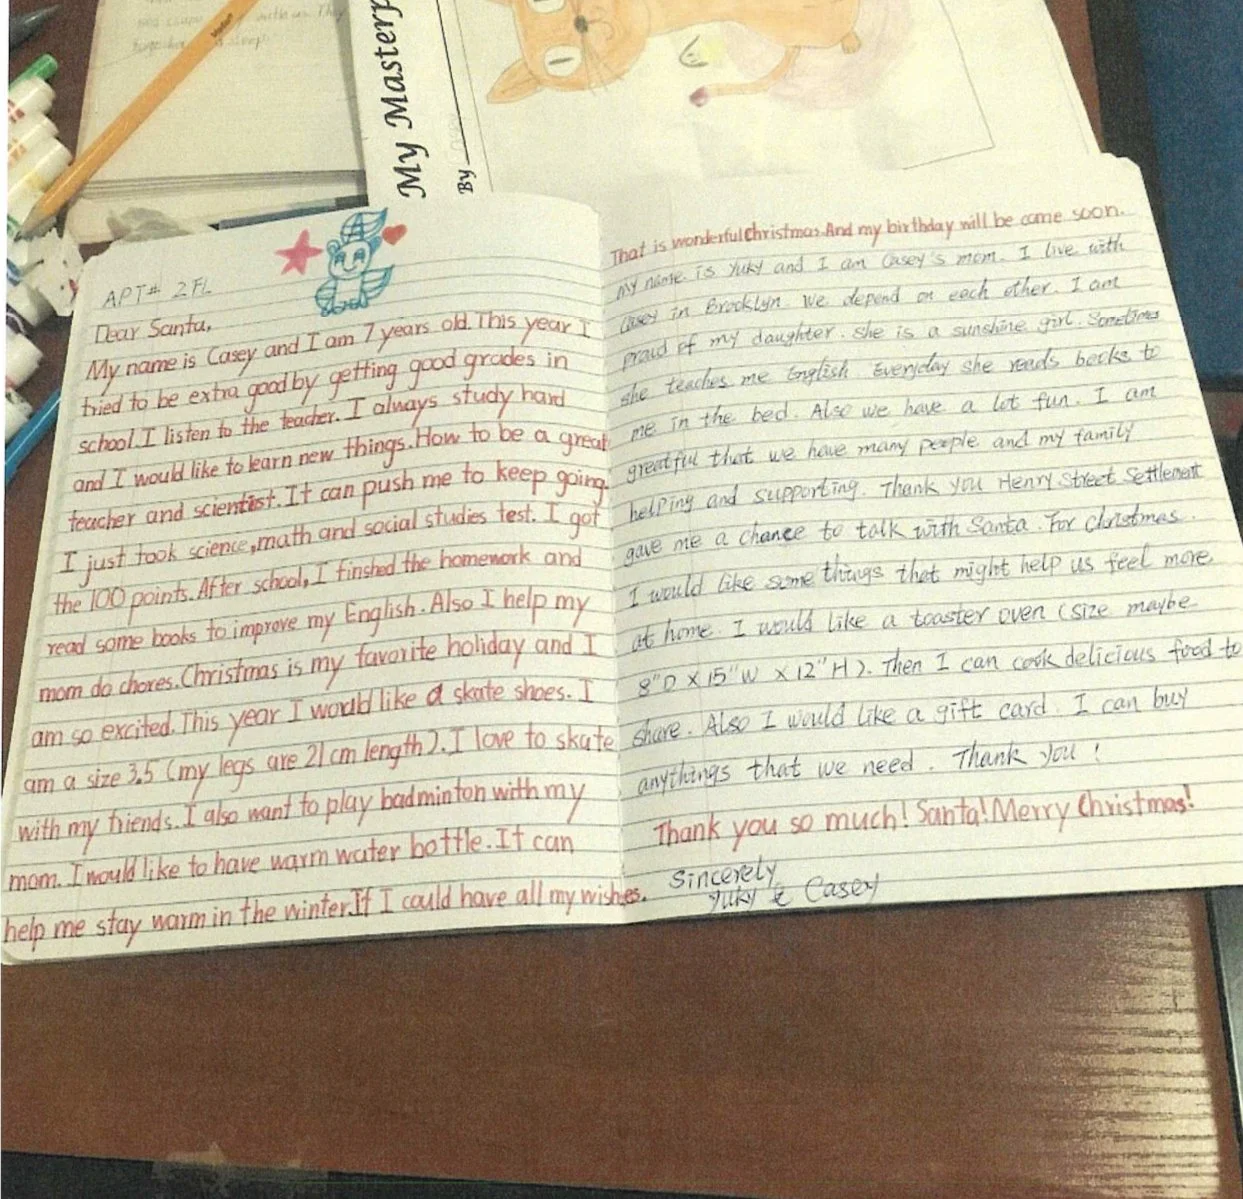 My Masterp
By
APT# 2FL
Dear Santa,
My name is Casey and I am 7 years old. This year I
tried to be extra good by getting good grades in
school. I listen to the teacher. I always study hard
and I would like to learn new things. How to be a great
teacher and scientist. It can push me to keep going.
I just took science, math and social studies test. I got
the 100 points. After school, I finshed the homework and
read some books to improve my English. Also I help my
mom do chores. Christmas is my favorite holiday and I
am so excited. This year I would like a skate shoes. I
am a size 3.5 (my legs are 21 cm length). I love to skate
with my friends. I also want to play badminton with my
mom. I would like to have warm water bottle. It can
help me stay warm in the winter. If I could have all my wishes.
That is wonderful Christmas. And my birthday will be come soon.
My name is Yuky and I am Casey's mom. I live with
Casey in Brooklyn. We depend on each other. I am
proud of my daughter. She is a sunshine girl. Sometimes
she teaches me English. Everyday she reads books to
me in the bed. Also we have a lot fun. I am
greatful that we have many people and my family
helping and supporting. Thank you Henry Street Settlement
gave me a chance to talk with Santa. For Christmas.
I would like some things that might help us feel more
at home. I would like a toaster oven (size maybe
8"D X 15"W X 12"H). Then I can cook delicious food to
share. Also I would like a gift card. I can buy
anythings that we need. Thank you!
Thank you so much! Santa! Merry Christmas!
Sincerely
Yuky & Casey